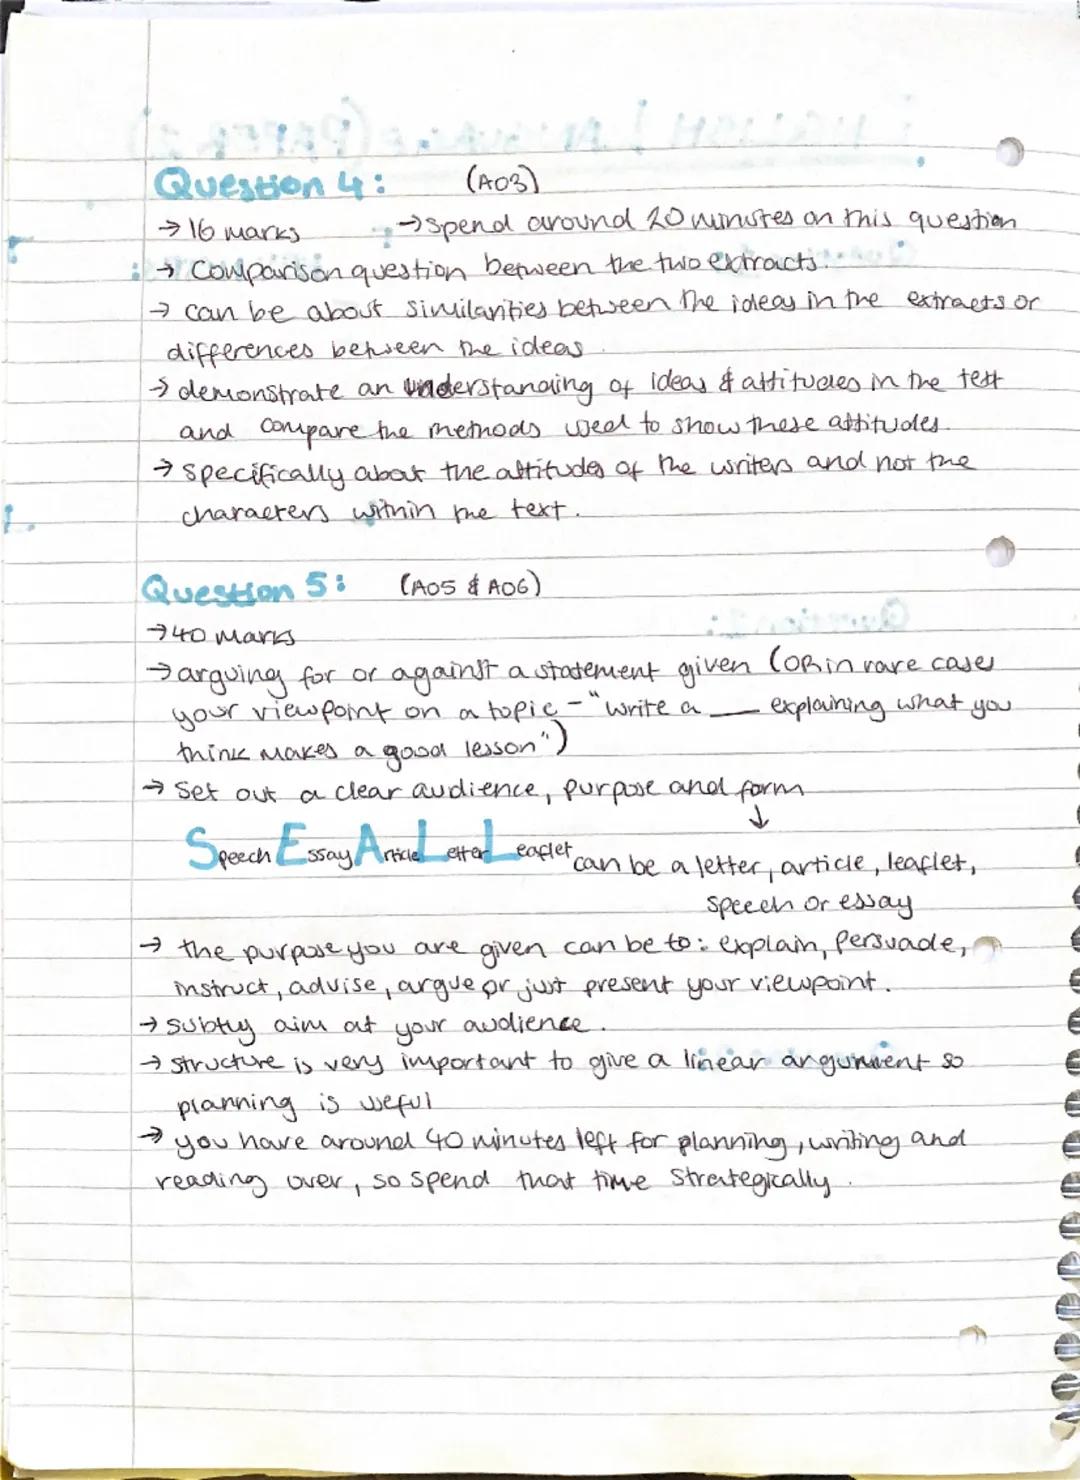 Question 4: (AO3)
→ 16 marks → spend around 20 minutes on this question
→ Comparison question between the two extracts.
→ can be about similarities between the ideas in the extracts or
differences between the ideas.
→ demonstrate an understanding of ideas & attitudes in the text
and compare the methods used to show these attitudes.
→ specifically about the attitudes of the writers and not the
characters within the text.
Question 5: (AO5 & AO6)
→ 40 marks
→ arguing for or against a statement given (OR in rare cases
your viewpoint on a topic - "write a __ explaining what you
think makes a good lesson")
→ Set out a clear audience, purpose and form
↓
Speech Essay Article Letter Leaflet can be a letter, article, leaflet,
speech or essay
→ the purpose you are given can be to: explain, persuade,
instruct, advise, argue or just present your viewpoint.
→ subtly aim at your audience.
→ structure is very important to give a linear argument so
planning is useful
→ you have around 40 minutes left for planning, writing and
reading over, so spend that time strategically.